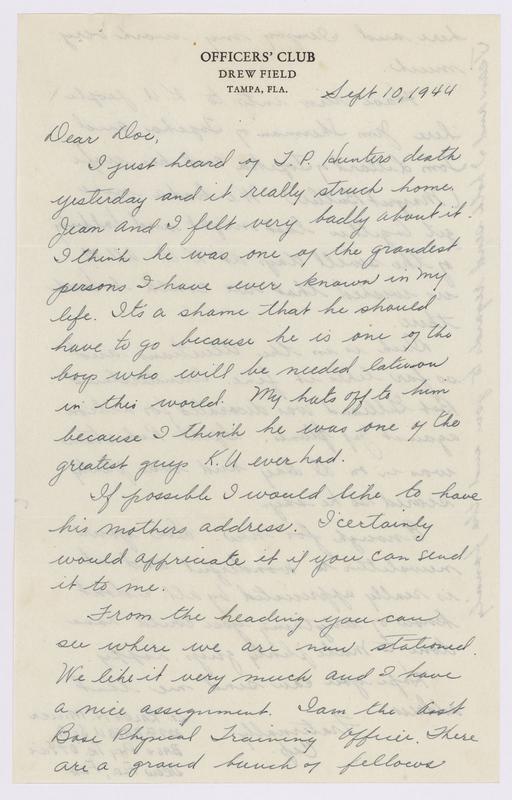 OFFICERS' CLUB
DREW FIELD
TAMPA, FLA.
Sept 10, 1944
Dear Doc,
I just heard of T. P. Hunters death
yesterday and it really struck home.
Jean and I felt very badly about it.
I think he was one of the grandest
persons I have ever known in my
life. It's a shame that he should
have to go because he is one of the
boys who will be needed later on
in this world. My hats off to him
because I think he was one of the
greatest guys K.U ever had.
If possible I would like to have
his mothers address. I certainly
would appreciate it if you can send
it to me.
From the heading you can
see where we are now stationed.
We like it very much and I have
a nice assignment. I am the Ass't.
Base Physical Training Officer. There
are a grand bunch of fellows